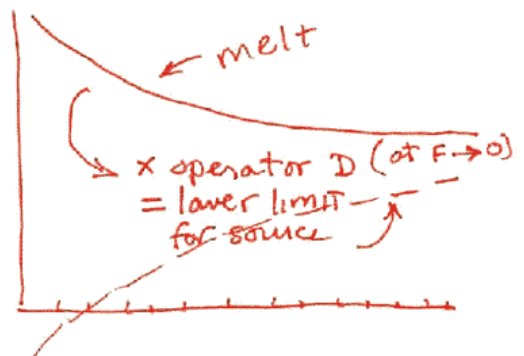 melt
x operator D (at F→0)
= lower limit
for source